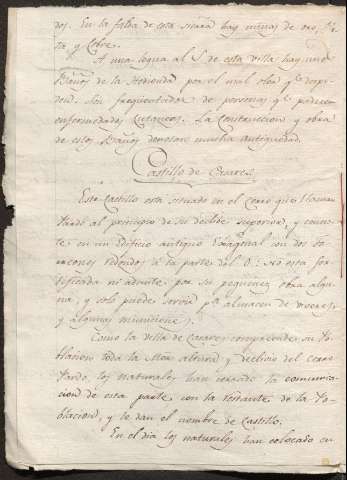 dos. En la falda de esta sierra hay minas de oro, Pla-
ta, y Cobre.
A una legua al S. de esta villa hay unos
Baños de la Hedionda por el mal olor qe. despi-
den. Son frequentados de personas qe. padecen
enfermedades Cutaneas. La Construccion y obra
de estos Baños denotan mucha antiguedad.
Castillo de Casares
Este Castillo está situado en el Cerro que llaman
Pardo al principio de su declive superior, y consis-
te en un Edificio antiguo Exagonal con dos to-
rreones redondos á la parte del O.: No está for-
tificado ni admite por su pequeñez obra algu-
na, y solo puede servir pa. almacen de viveres,
y algunas municiones.
Como la Villa de Casares comprende en su Po-
blacion toda la altura y declivio del cerro
Pardo, los naturales han cerrado la comunica-
cion de esta parte con la restante de la Po-
blacion, y le dan el nombre de Castillo.
En el dia los naturales han colocado en